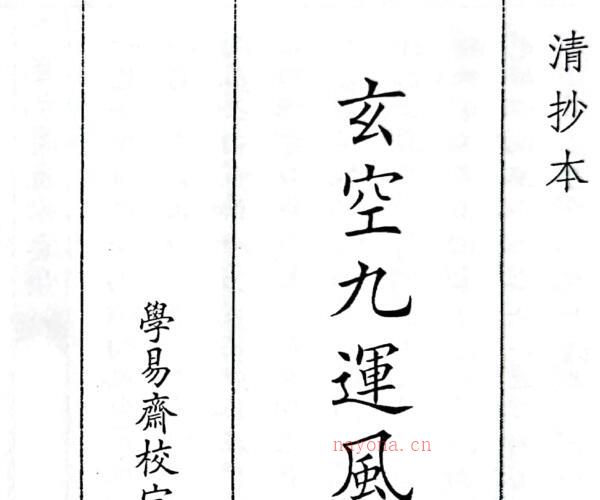 清抄本
玄空九運風
學易齋校
nayona.cn